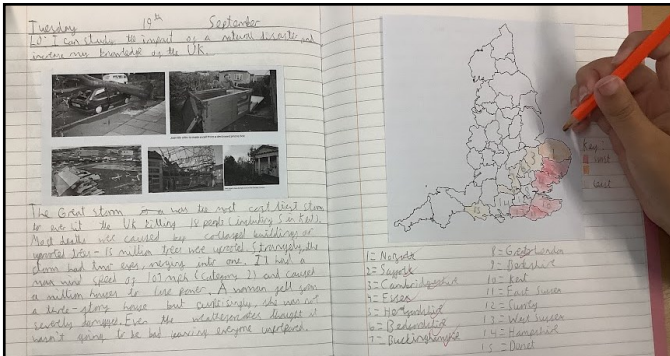 Tuesday 19th September
LO: I can study the impact of a natural disaster and
increase my knowledge of the UK.
The Great storm was the most significant storm
to ever hit the UK killing 18 people (including 5 in Kent).
Most deaths was caused by collapsed buildings or
uprooted trees - 15 million trees were uprooted. Strangely, the
storm had two eyes, merging into one. It had a
max wind speed of 107 mph (Category 2) and caused
a million houses to lose power. A woman fell from
a three-story house but surprisingly, she was not
severely damaged. Even the weatherman thought it
wasn't going to be bad leaving everyone unprepared.
Key:
worst
least
1 = Norfolk
2 = Suffolk
3 = Cambridgeshire
4 = Essex
5 = Hertfordshire
6 = Bedfordshire
7 = Buckinghamshire
8 = Greater London
9 = Berkshire
10 = Kent
11 = East Sussex
12 = Surrey
13 = West Sussex
14 = Hampshire
15 = Dorset